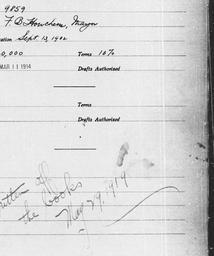 9859
F. D. Houchens, Mayor
ation Sept. 13, 1902
0,000 Terms 10%
MAR 11 1914 Drafts Authorized
Terms
Drafts Authorized
itten off
the books
May 29, 1919